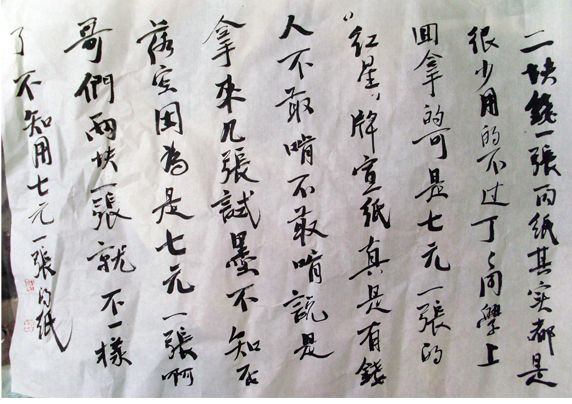 二块錢一張的纸其实都是
很少用的不过丁丁同學上
回拿的可是七元一張的
“红星”牌宣纸真是有錢
人不敢啃不敢啃説是
拿來几張試墨不知否
落实因為是七元一張啊
哥們兩块一張就不一樣
了不知用七元一張的紙